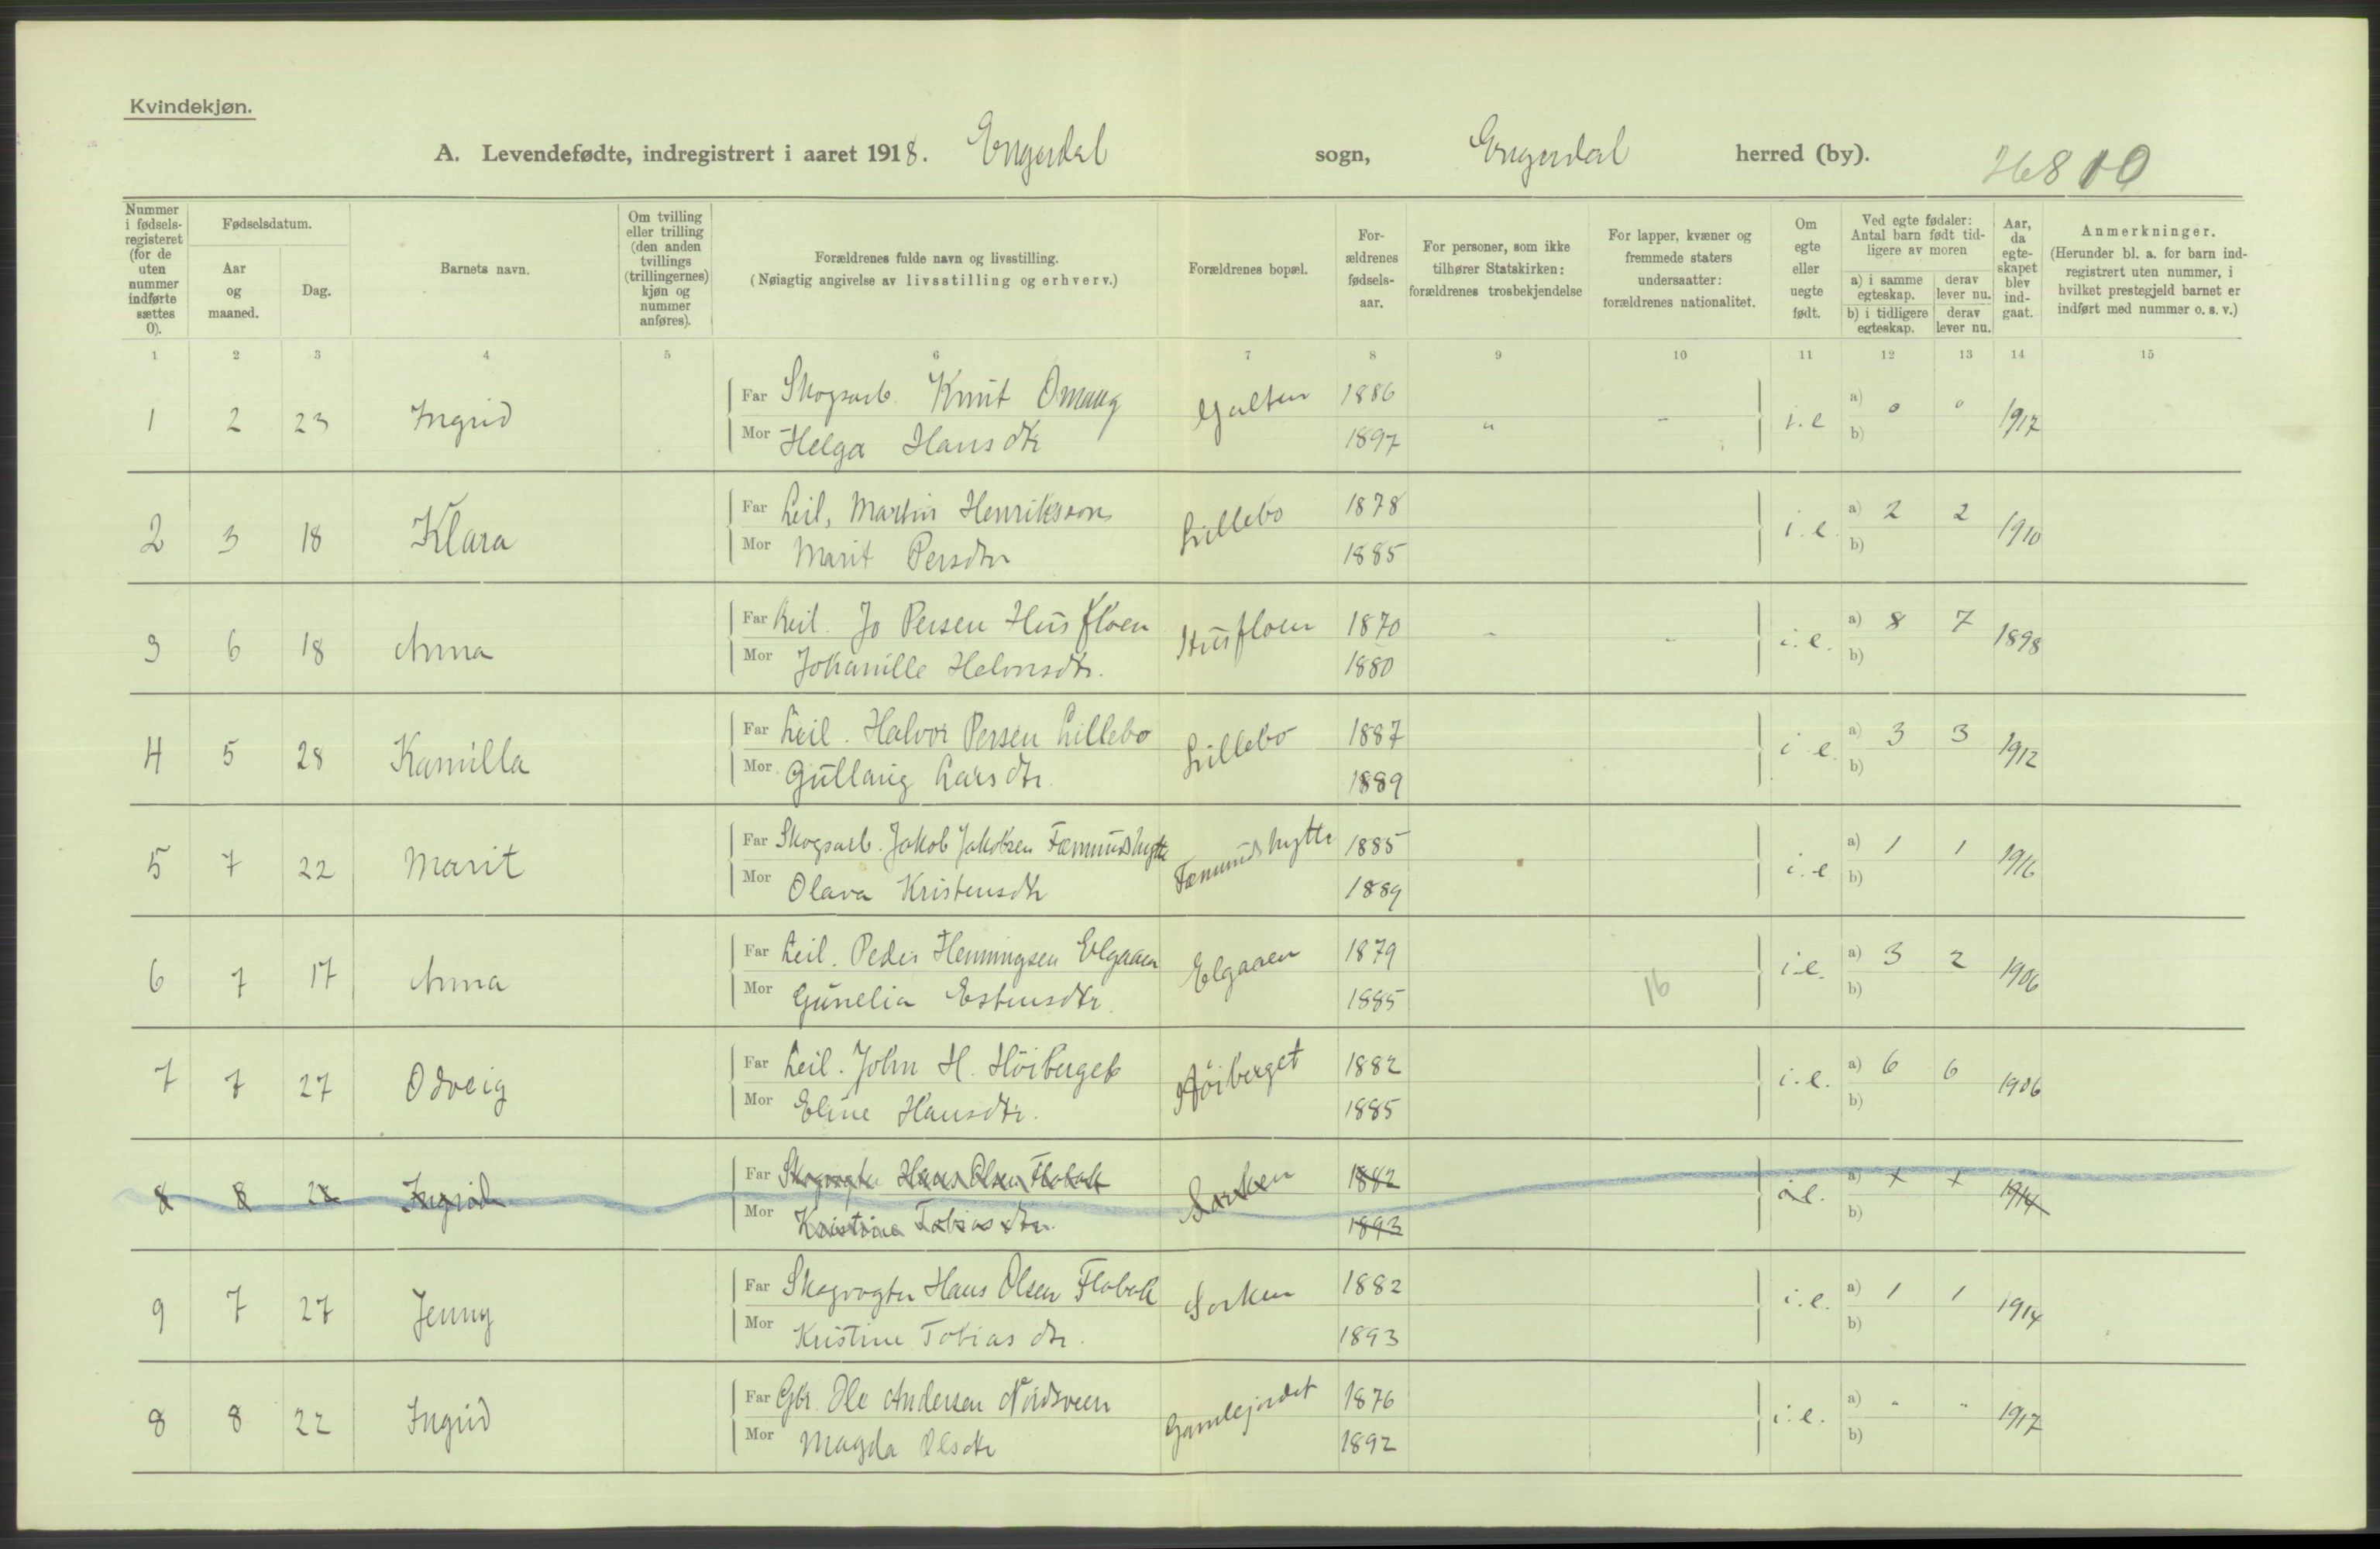 Kvindekjøn.
A. Levendefødte, indregistrert i aaret 1918. Engerdal sogn, Engerdal herred (by). 10
Nummer i fødsels-registeret (for de uten nummer indførte sættes 0).
Fødselsdatum.
Aar og maaned.
Dag.
Barnets navn.
Om tvilling eller trilling (den anden tvillings (trillingernes) kjøn og nummer anføres).
Forældrenes fulde navn og livsstilling.
(Nøiagtig angivelse av livsstilling og erhverv.)
Forældrenes bopæl.
For-ældrenes fødsels-aar.
For personer, som ikke tilhører Statskirken: forældrenes trosbekjendelse
For lapper, kvæner og fremmede staters undersaatter: forældrenes nationalitet.
Om egte eller uegte født.
Ved egte fødsler: Antal barn født tid-ligere av moren
a) i samme egteskap. derav lever nu.
b) i tidligere egteskap. derav lever nu.
Aar, da egte-skapet blev ind-gaat.
Anmerkninger.
(Herunder bl. a. for barn ind-registrert uten nummer, i hvilket prestegjeld barnet er indført med nummer o. s. v.)
1 2 3 4 5 6 7 8 9 10 11 12 13 14 15
1 2 23 Ingrid Far Skogsarb. Knut Omang Galten 1886 i.e a) 0 0 1917
Mor Helga Hansdtr 1897 " - b)
2 3 18 Klara Far Leil, Martin Henriksson Lillebo 1878 i.e. a) 2 2 1910
Mor Marit Persdtr 1885 b)
3 6 18 Anna Far Leil. Jo Persen Husfloen Husfloen 1870 - - i.e. a) 8 7 1898
Mor Johanille Helmsdtr. 1880 b)
4 5 28 Kamilla Far Leil. Halvor Persen Lillebo Lillebo 1887 i e. a) 3 3 1912
Mor Gullaug Larsdtr. 1889 b)
5 7 22 Marit Far Skogsarb. Jakob Jakobsen Fæmundshytte Fæmundshytte 1885 i.e a) 1 1 1916
Mor Olava Kristensdtr 1889 b)
6 7 17 Anna Far Leil. Peder Henningsen Elgaaen Elgaaen 1879 i.e. a) 3 2 1906
Mor Gunelia Estensdtr. 1885 16 b)
7 7 27 Odveig Far Leil. John H. Höiberget Höiberget 1882 i.e. a) 6 6 1906
Mor Eline Hansdtr. 1885 b)
8 8 22 Ingrid Far Skogvogter Hans Olsen Flobak Sorken 1882 i.e. a) 1 1 1914
Mor Kristine Tobiasdtr. 1893 b)
9 7 27 Jenny Far Skogvogter Hans Olsen Flobak Sorken 1882 i.e. a) 1 1 1914
Mor Kristine Tobiasdtr. 1893 b)
8 8 22 Ingrid Far Gbr. Ole Andersen Nordsveen Gamlejordet 1876 i.e. a) " " 1917
Mor Magda Olsdtr 1892 b)